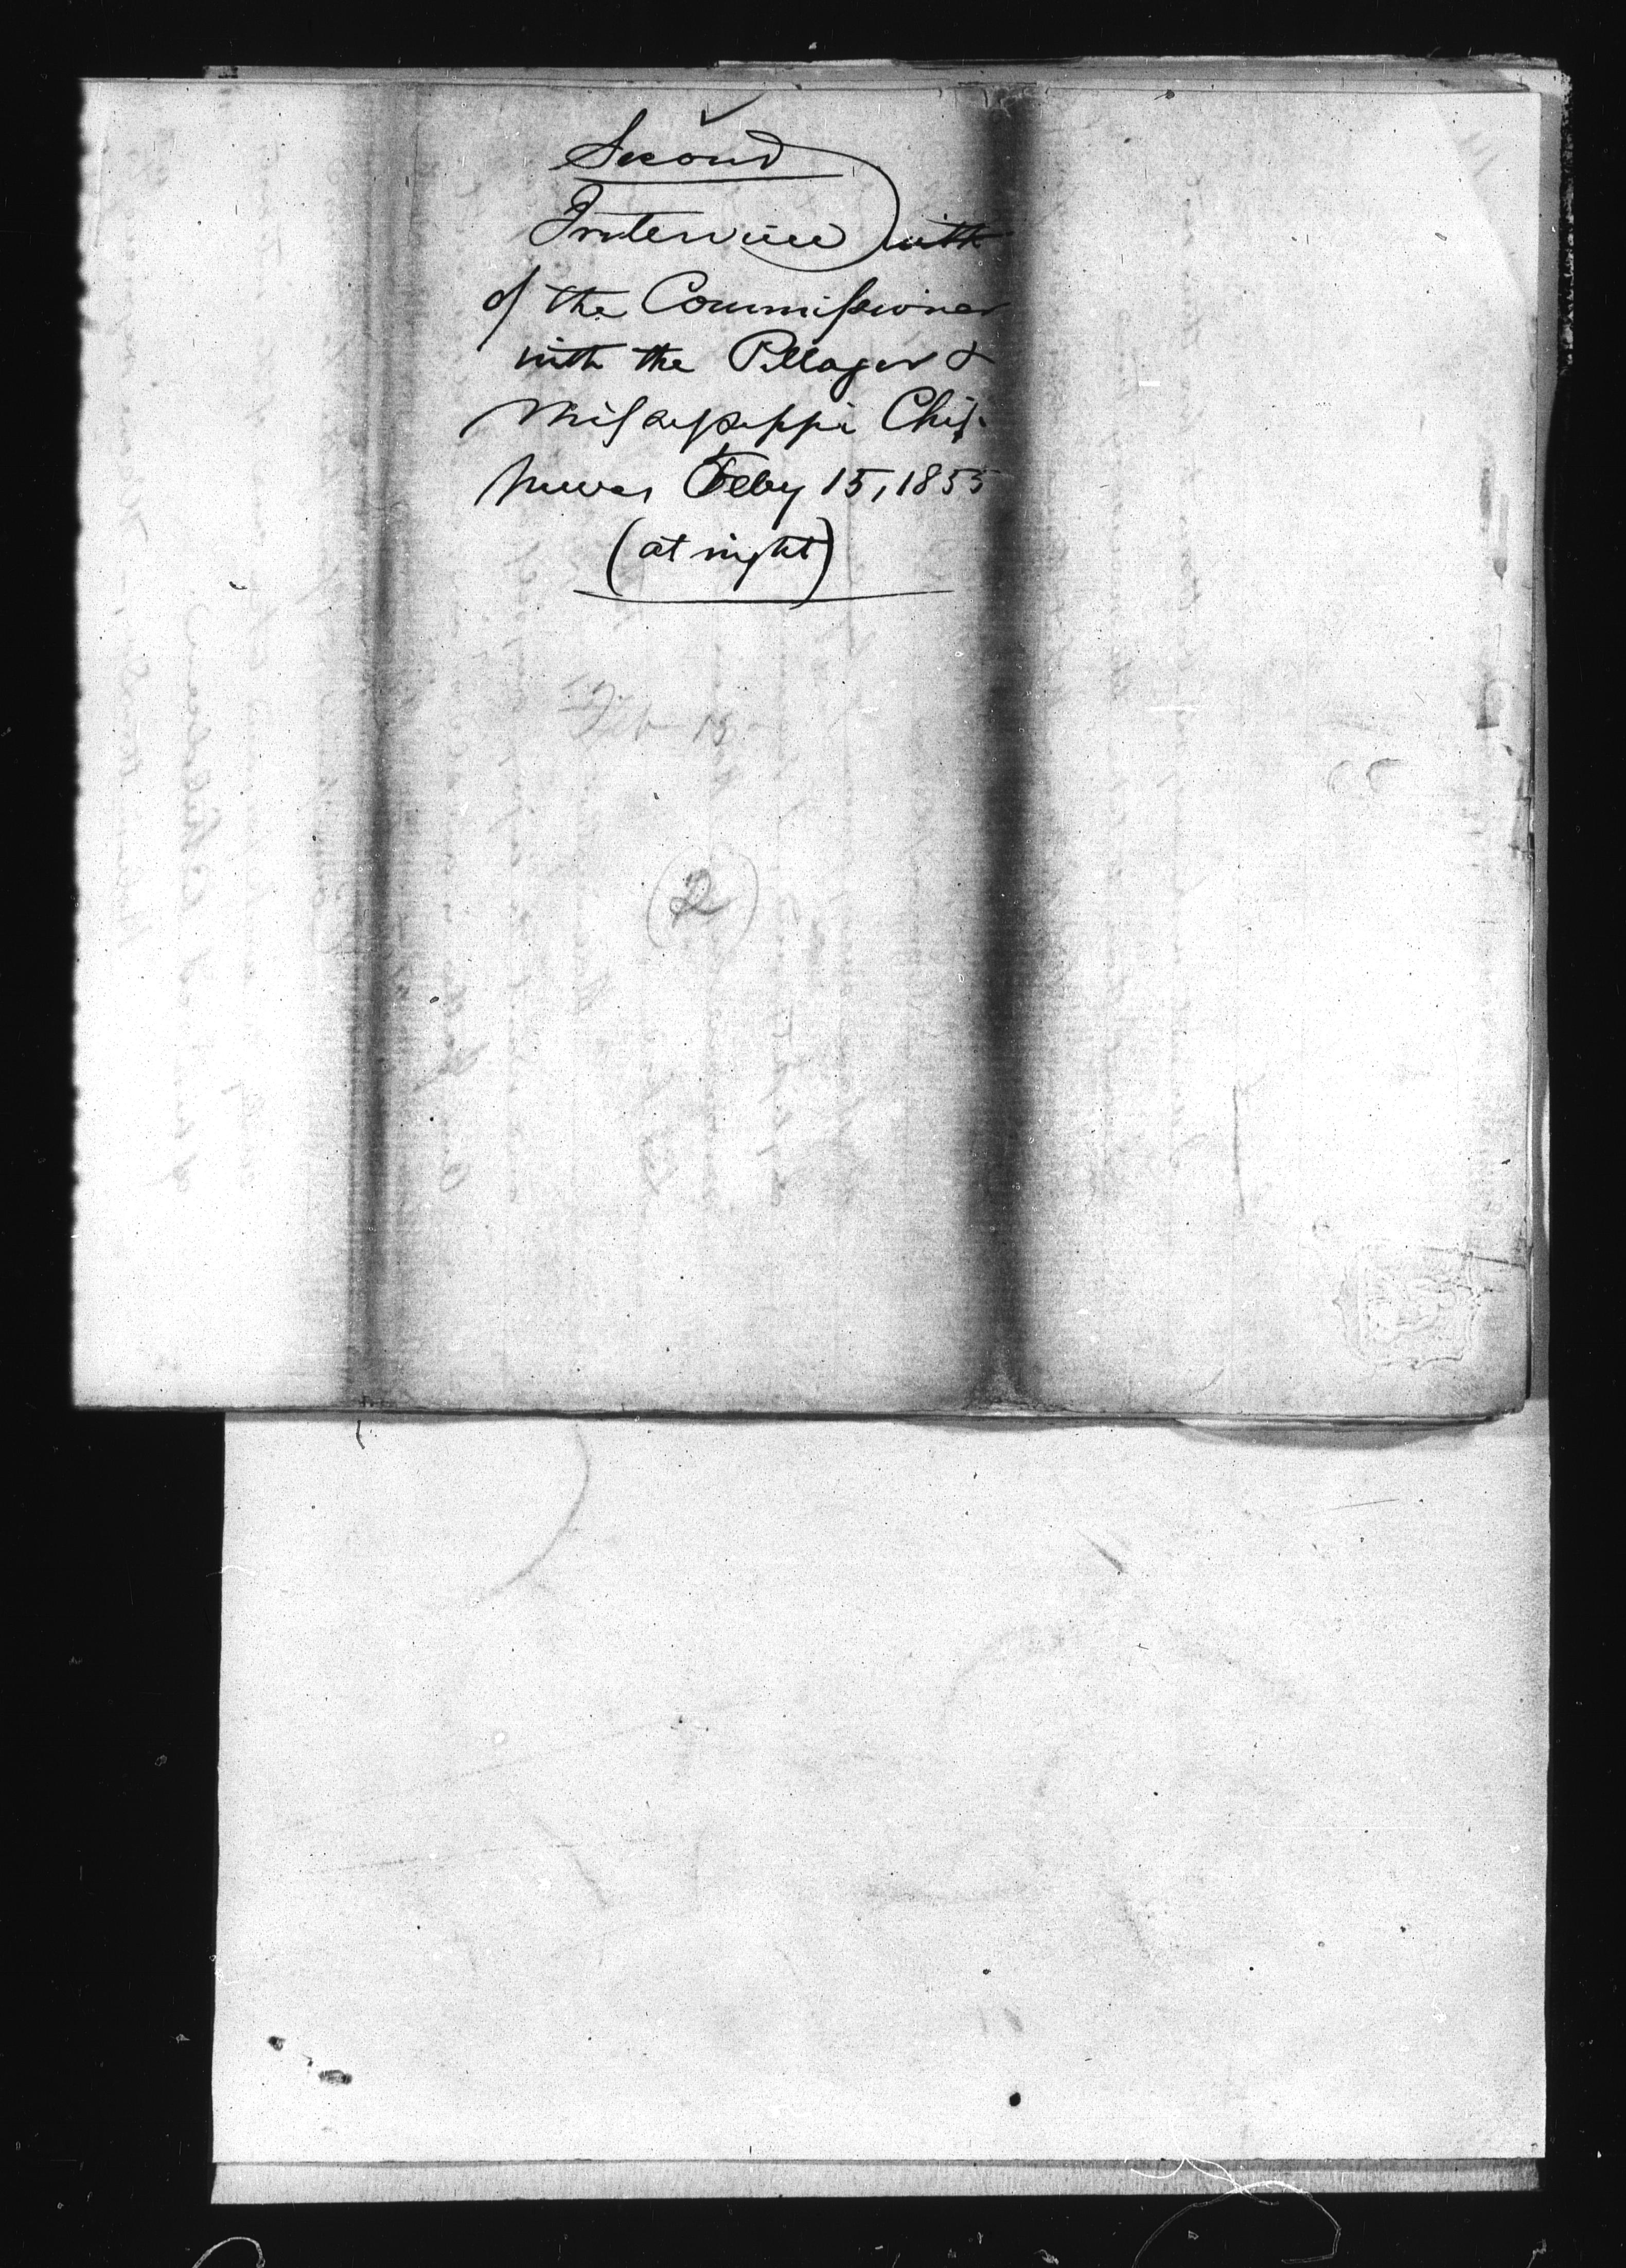 Second
Interview with
of the Commissioner
with the Pillager &
Mississippi Chip-
pewas Feby 15, 1855
(at night)
Feb 15
(2)